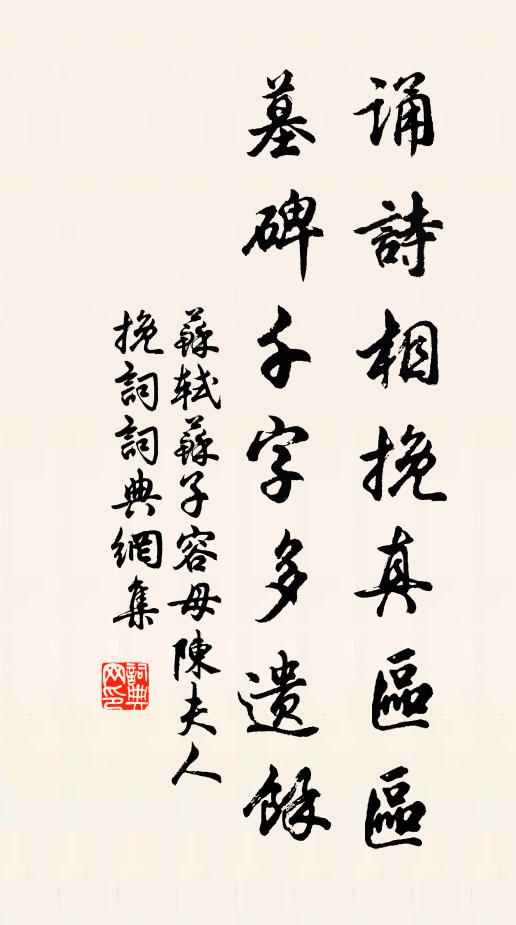 诵詩相挽真區區
墓碑千字多遗餘
蘇轼蘇子容母陳夫人
挽詞詞典網集
詞典网印